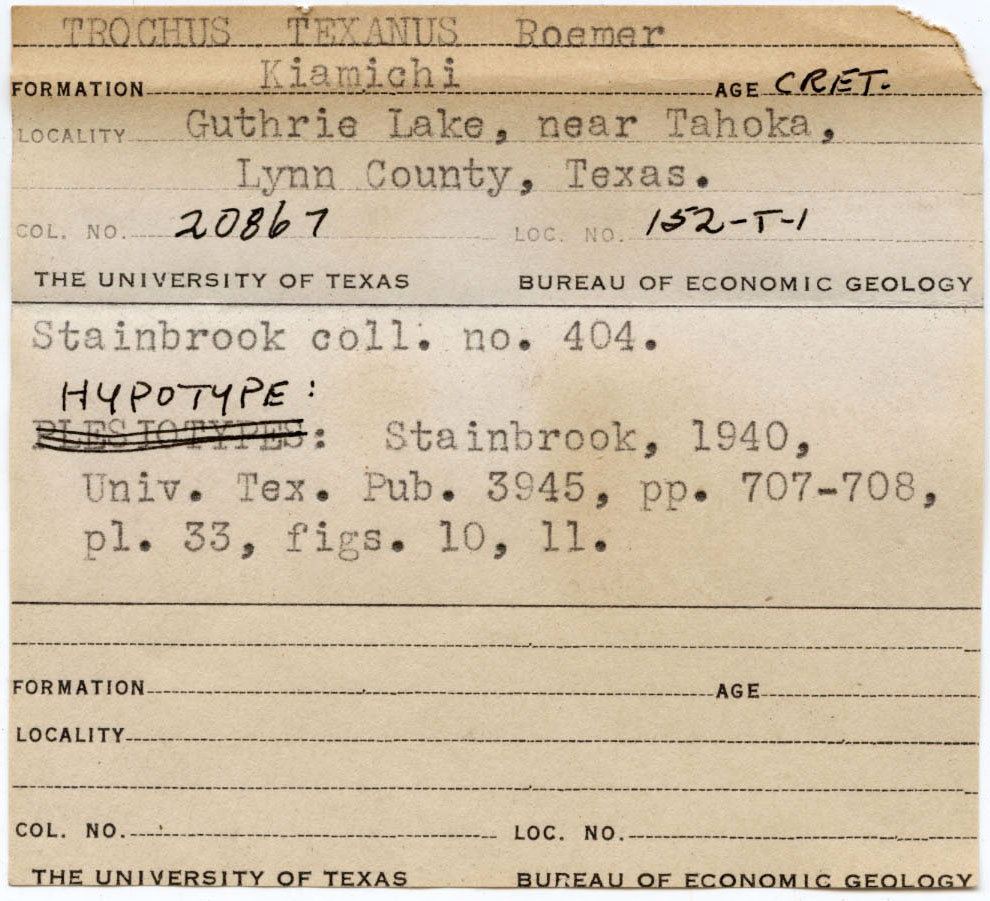 TROCHUS TEXANUS Roemer
FORMATION Kiamichi AGE CRET.
LOCALITY Guthrie Lake, near Tahoka,
Lynn County, Texas.
COL. NO. 20867 LOC. NO. 152-T-1
THE UNIVERSITY OF TEXAS BUREAU OF ECONOMIC GEOLOGY
Stainbrook coll. no. 404.
HYPOTYPE:
PLESIOTYPES: Stainbrook, 1940,
Univ. Tex. Pub. 3945, pp. 707-708,
pl. 33, figs. 10, 11.
FORMATION AGE
LOCALITY
COL. NO. LOC. NO.
THE UNIVERSITY OF TEXAS BUREAU OF ECONOMIC GEOLOGY